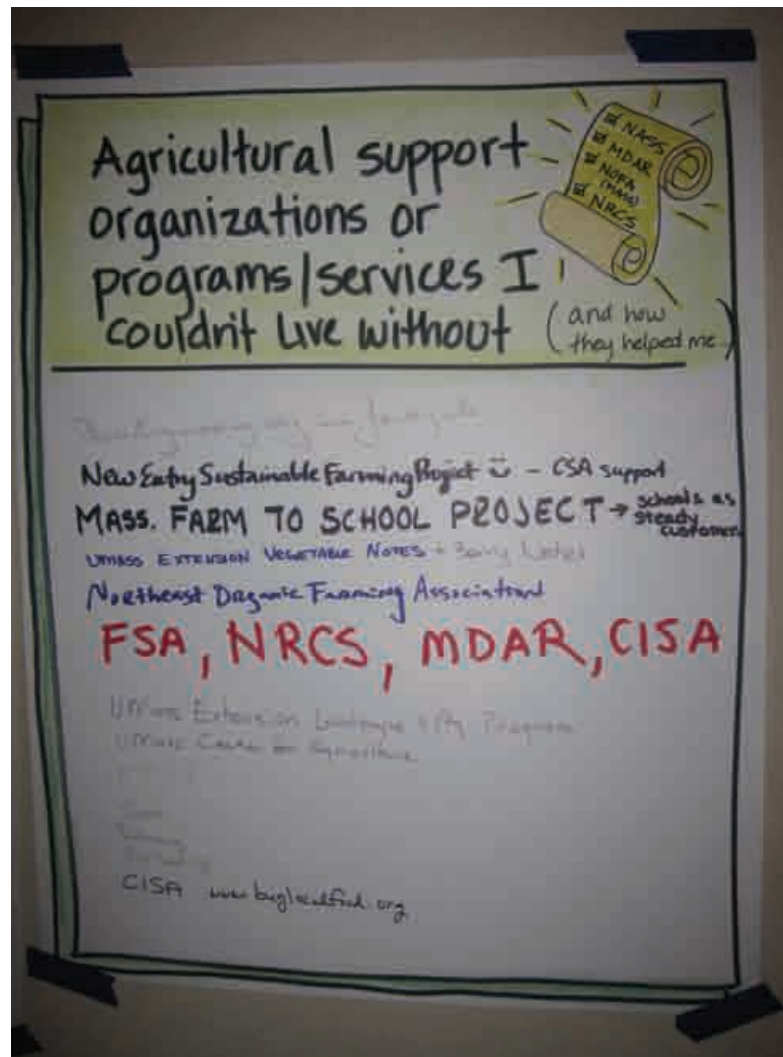 Agricultural support
organizations or
programs/services I
couldn't Live without
(and how
they helped me...)
☑ NASS
☑ MDAR
☑ NOFA
(MASS)
☑ NRCS
New Entry Sustainable Farming Project - CSA support
MASS. FARM TO SCHOOL PROJECT → schools as
steady
customers
UMASS EXTENSION VEGETABLE NOTES + Berry Notes
Northeast Organic Farming Association
FSA, NRCS, MDAR, CISA
UMass Extension Landscape
UMass Center for Agriculture
CISA www.buylocalfood.org